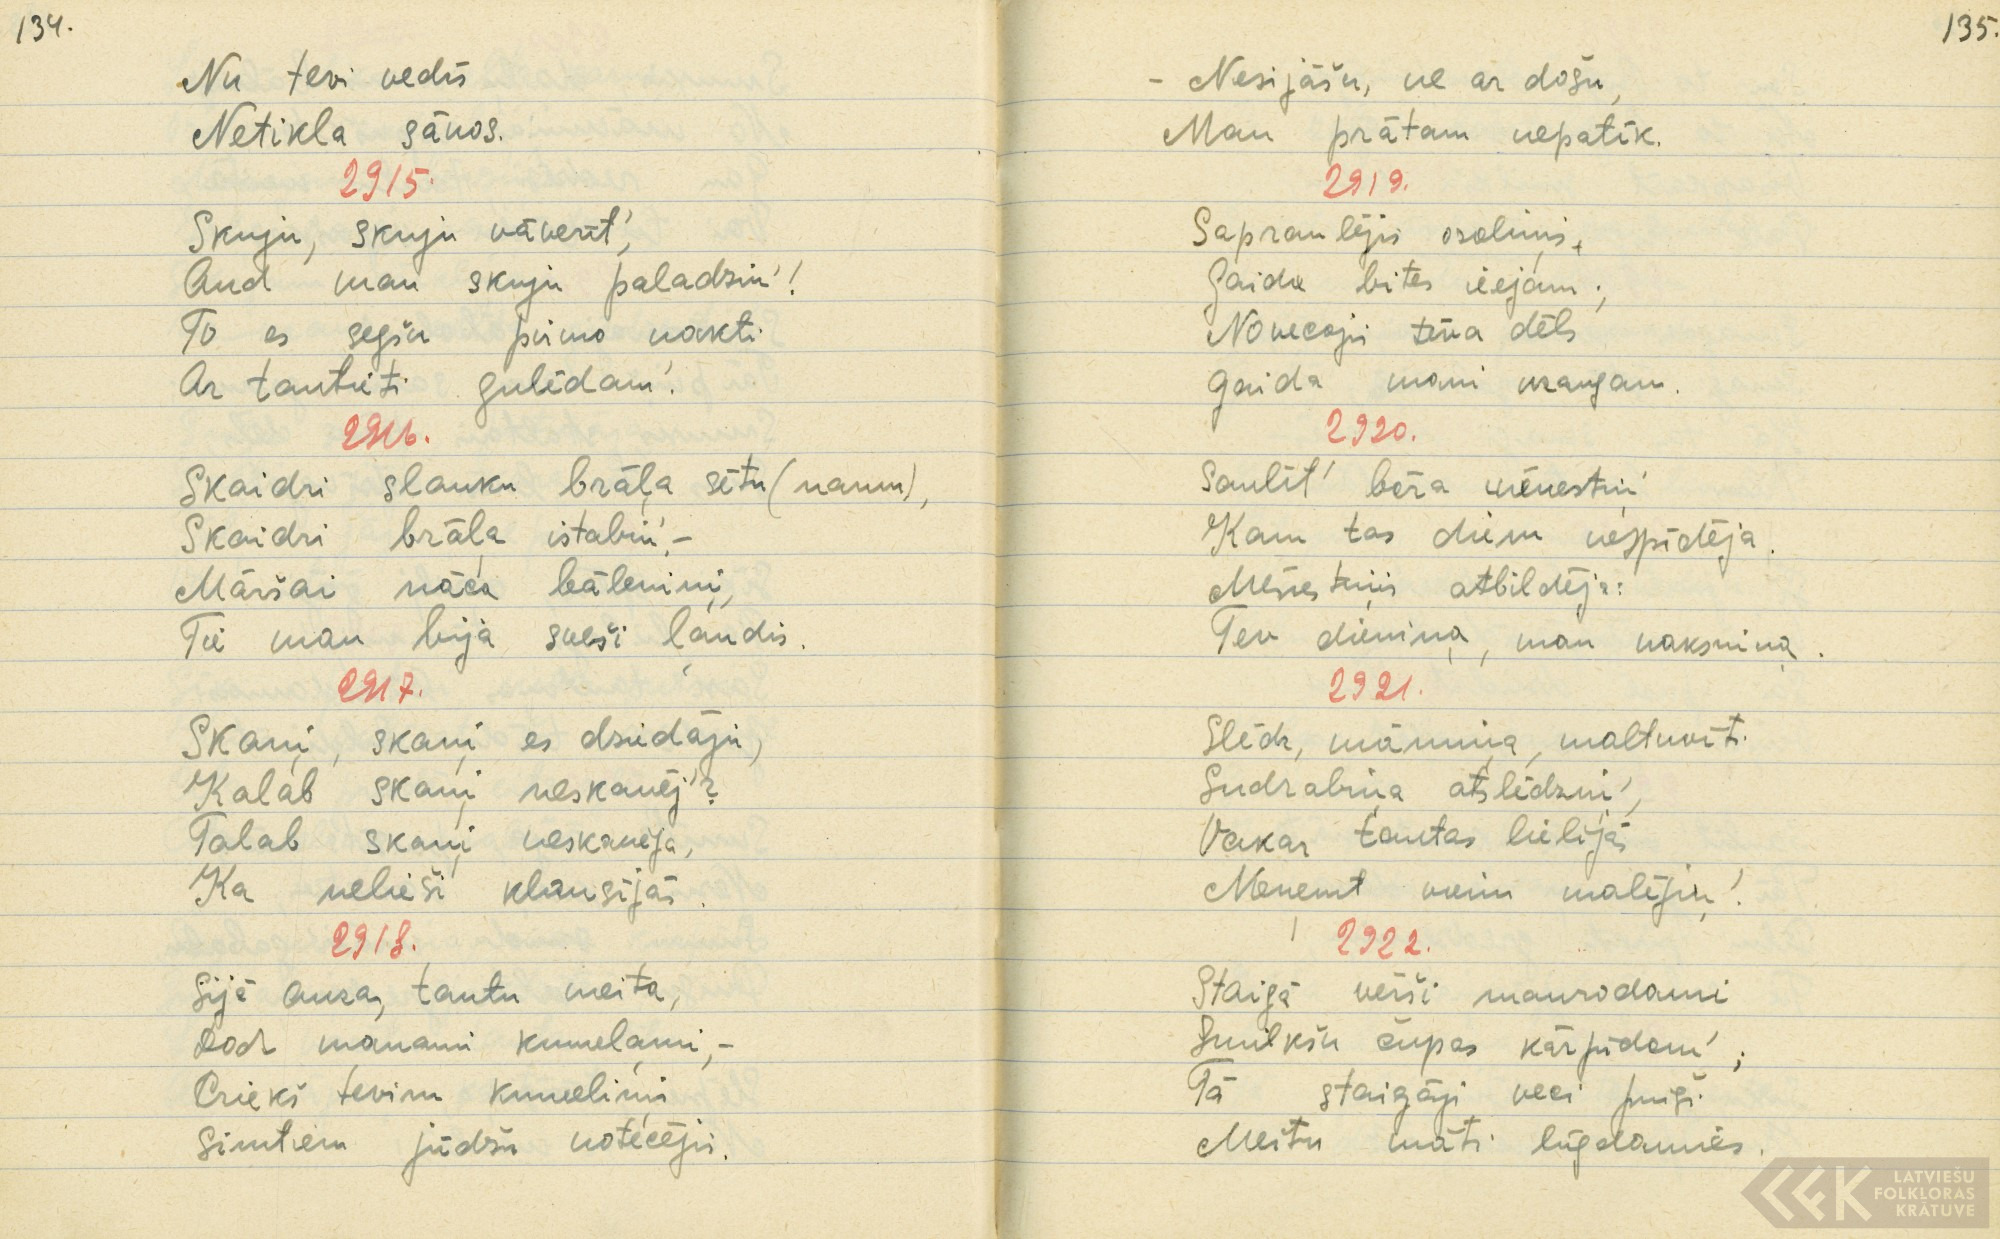 134.
Nu tevi vedīs
Netikla sānos.
2915.
Skuju, skuju vāverīt',
Aud man skuju paladziņ'!
To es segšu pirmo nakti
Ar tautieti gulēdam'.
2916.
Skaidri slauku brāļa sētu (namu),
Skaidri brāļa istabiņ',-
Māršai nāca bāleniņi,
Tie man bija sveši ļaudis.
2917.
Skaņi, skaņi es dziedāju,
Kalab skaņi neskanēj'?
Talab skaņi neskanēja,
Ka nelieši klausījās.
2918.
Sijā auzas, tautu meita,
Dod manami kumeļami,-
Priekš tevim kumeliņi
Simtiem jūdžu notecējis.
135.
- Nesijāšu, ne ar došu,
Man prātam nepatīk.
2919.
Sapraulējis ozoliņis,
Gaida bites ieejam;
Novecojis tēva dēls
Gaida mani uzaugam.
2920.
Saulīt' bāra mēnestiņ'
Kam tas dienu nespīdēja.
Mēnestiņis atbildēja:
Tev dieniņa, man naksniņa.
2921.
Slēdz, māmiņa, maltuvīt.
Sudrabiņa atslēdziņ',
Vakar tautas lielījās
Meņemt vienu malējiņ'!
2922.
Staigā vērši maurodami
Smilkšu čupas kārpīdami;
Tā staigāji veci puiši
Meitu māti lūgdamies.
LATVIEŠU
FOLKLORAS
KRĀTUVE